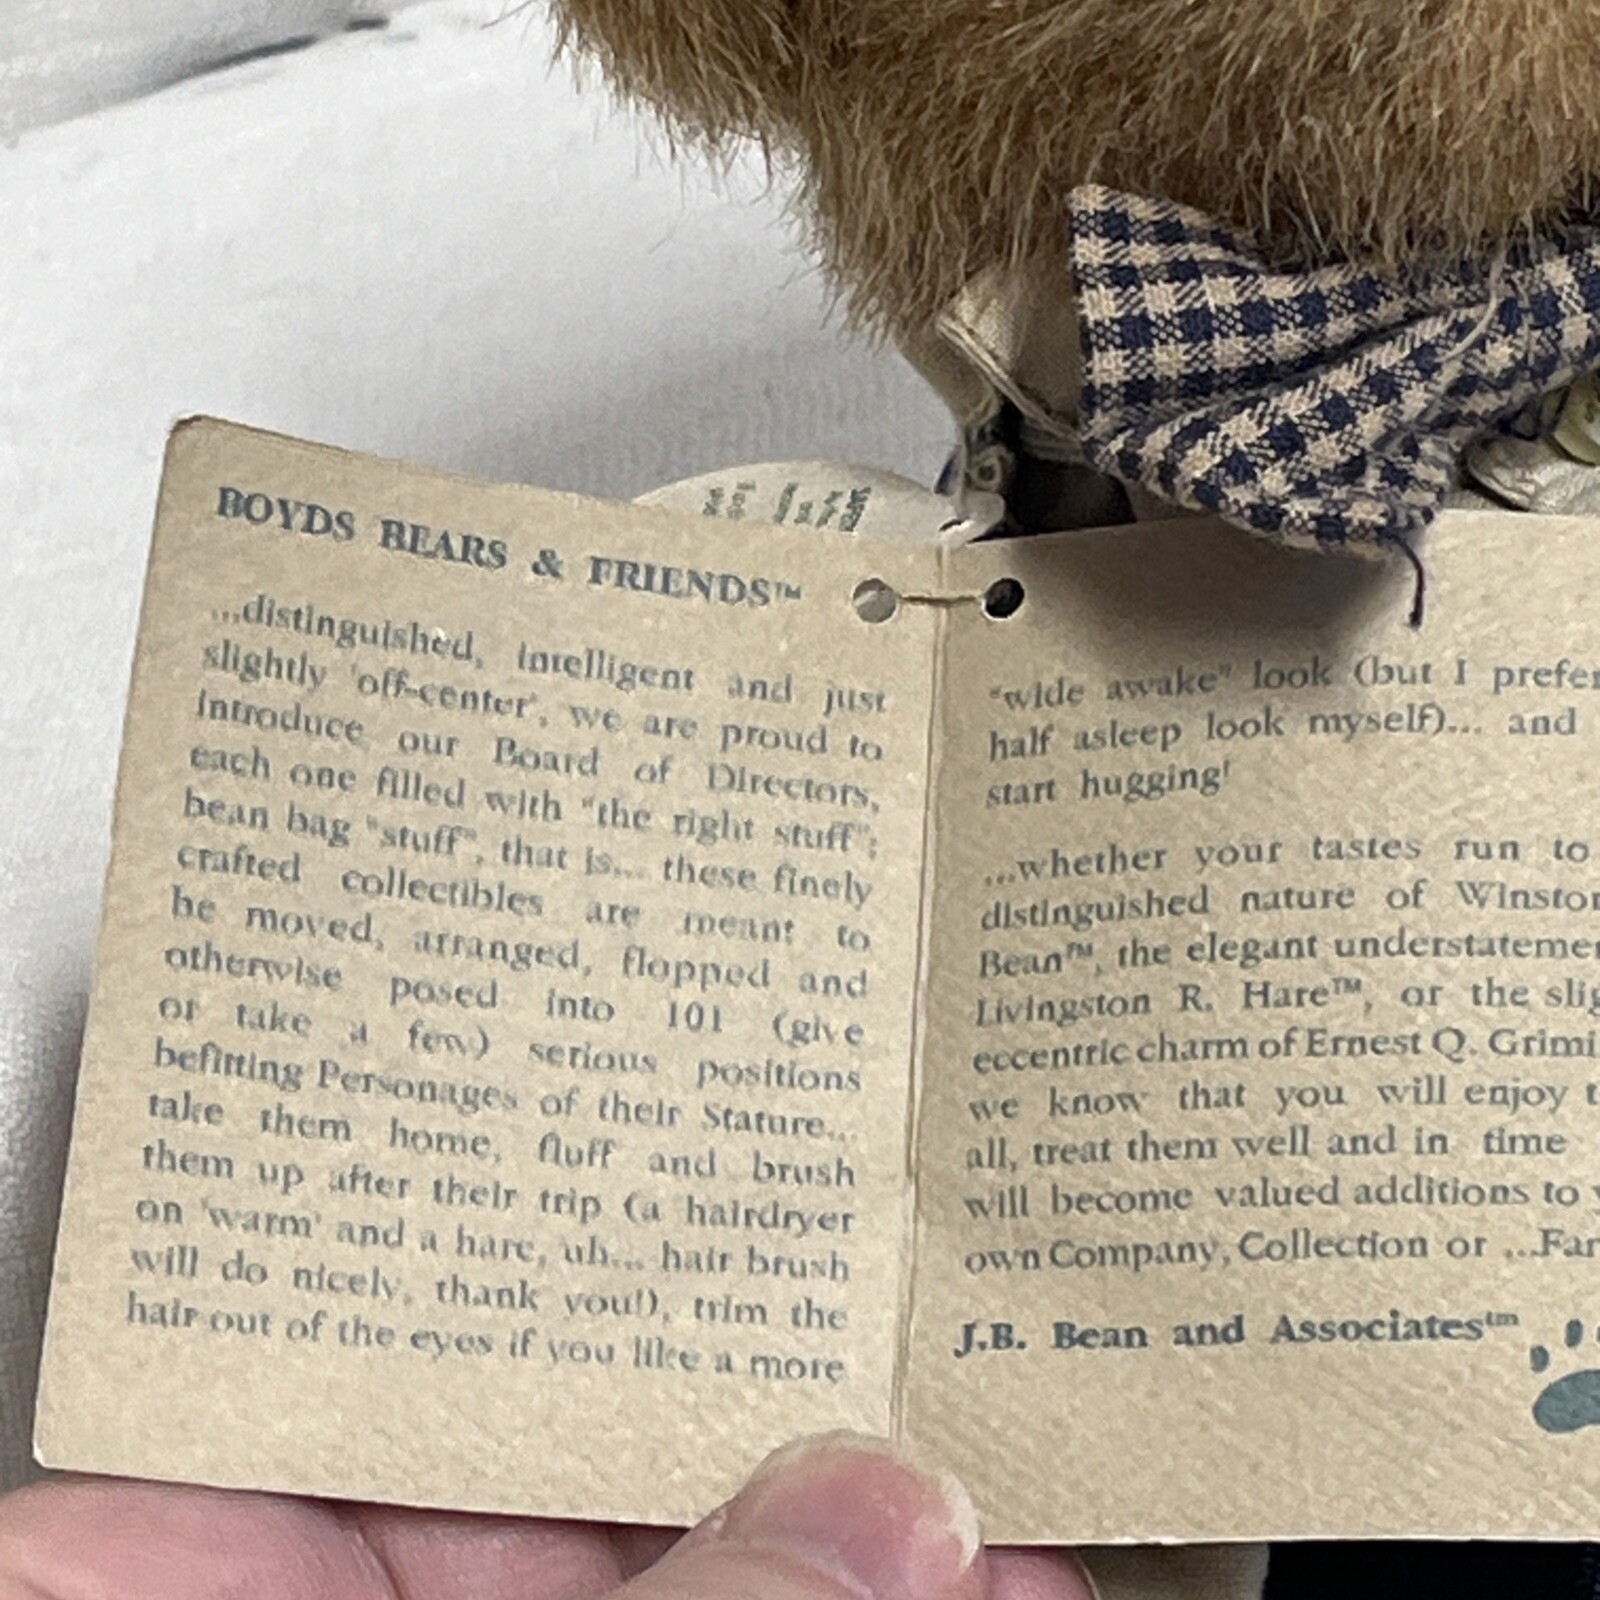 BOYDS BEARS & FRIENDS™
...distinguished, intelligent and just
slightly 'off-center', we are proud to
introduce our Board of Directors,
each one filled with "the right stuff";
bean bag "stuff", that is... these finely
crafted collectibles are meant to
be moved, arranged, flopped and
otherwise posed into 101 (give
or take a few) serious positions
befitting Personages of their Stature...
take them home, fluff and brush
them up after their trip (a hairdryer
on 'warm' and a hare, uh... hair brush
will do nicely, thank you!), trim the
hair out of the eyes if you like a more
"wide awake" look (but I prefer
half asleep look myself)... and
start hugging!
...whether your tastes run to
distinguished nature of Winston
Bean™, the elegant understatemen
Livingston R. Hare™, or the slig
eccentric charm of Ernest Q. Grimi
we know that you will enjoy t
all, treat them well and in time
will become valued additions to y
own Company, Collection or ...Fam
J.B. Bean and Associates™